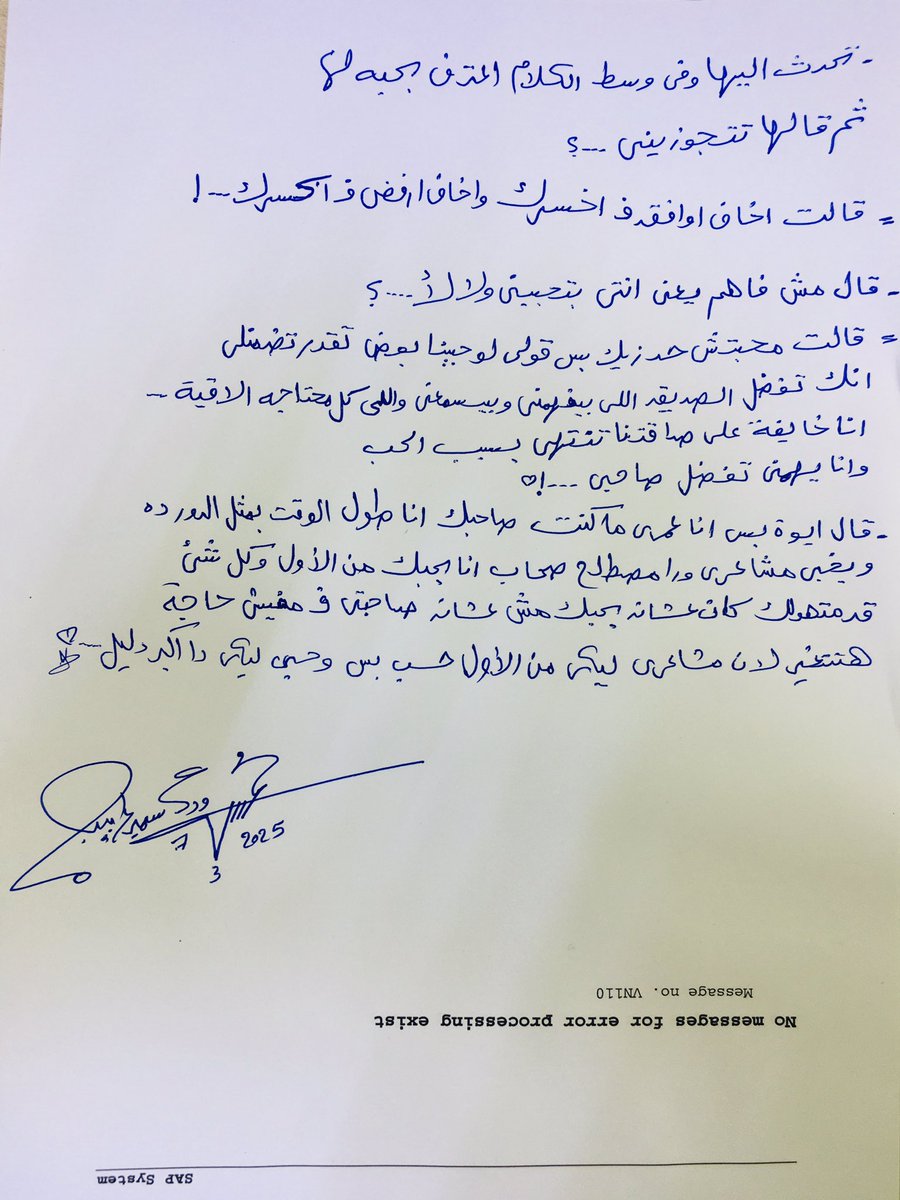 - تحدث اليها وفى وسط الكلام اعترف بحبه لها
ثم قالها تتجوزينى ...؟
= قالت اخاف اوافق ف اخسرك واخاف ارفض ف اكسرك ...!
- قال مش فاهم يعنى انتى بتحبينى ولا لأ ....؟
= قالت محبتش حد زيك بس قولى لو حبينا بعض تقدر تضمنلى
انك تفضل الصديق اللى بيفهمنى وبيسمعنى واللى كل محتاجه الاقية ...
انا خايفة على صداقتنا تنتهى بسبب الحب
وانا يهمنى تفضل صاحبى ...!♡
- قال ايوة بس انا عمرى ما كنت صاحبك انا طول الوقت بمثل الدور ده
وبخبى مشاعرى ورا مصطلح صحاب انا بحبك من الأول وكل شئ
قدمتهولك كان عشانه بحبك مش عشانه صاحبتى ف مفيش حاجة
هتتغير لان مشاعرى ليكى من الأول حب بس وحبى ليكى دا اكبر دليل ...♡
سمير
7 3 2025
Message no. VN110
No messages for error processing exist
SAP System